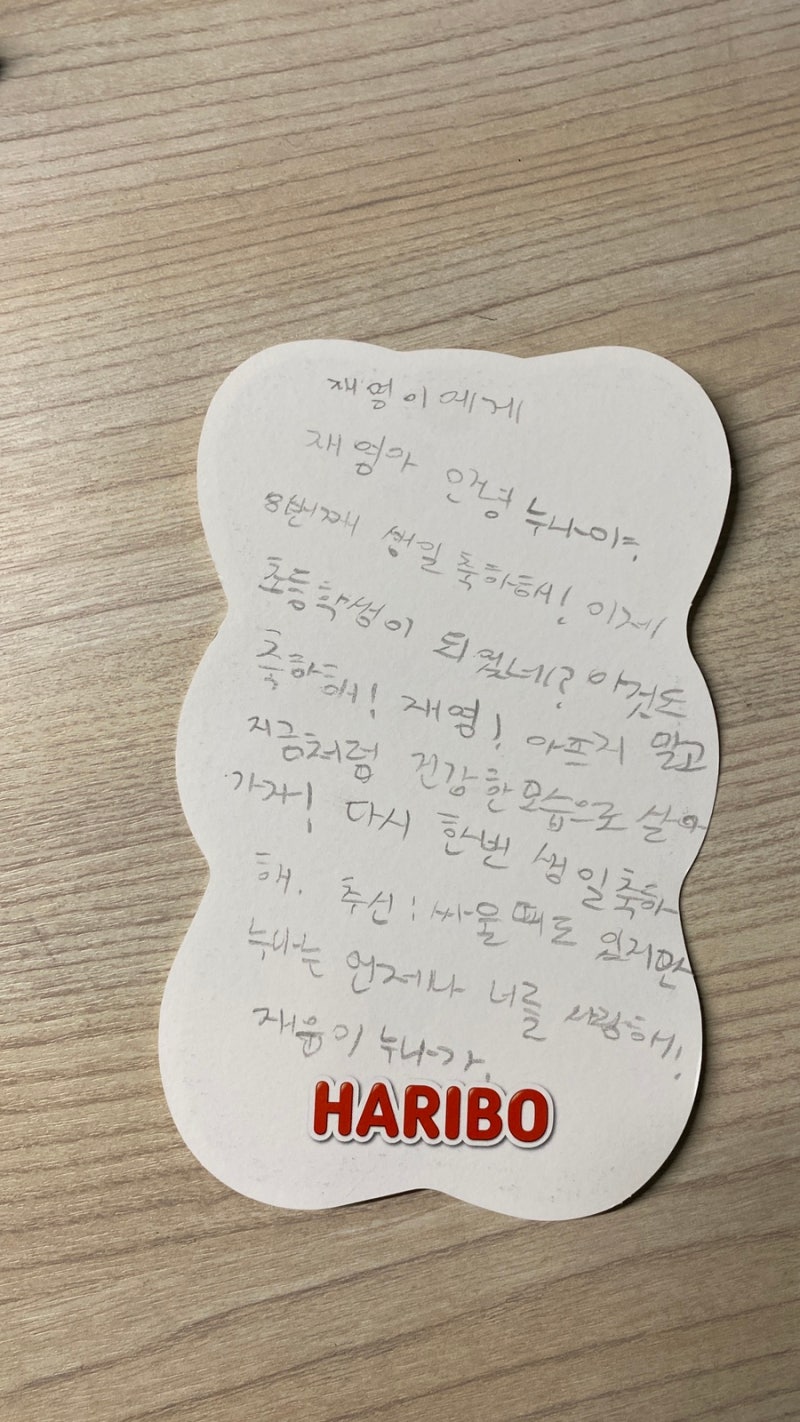 재영이에게
재영아 안녕 누나야.
8번째 생일 축하해! 이제
초등학생이 되었네? 이것도
축하해! 재영! 아프지 말고
지금처럼 건강한 모습으로 살아
가자! 다시 한번 생일축하
해. 추신: 싸울때도 있지만
누나는 언제나 너를 사랑해!
재윤이 누나가.
HARIBO